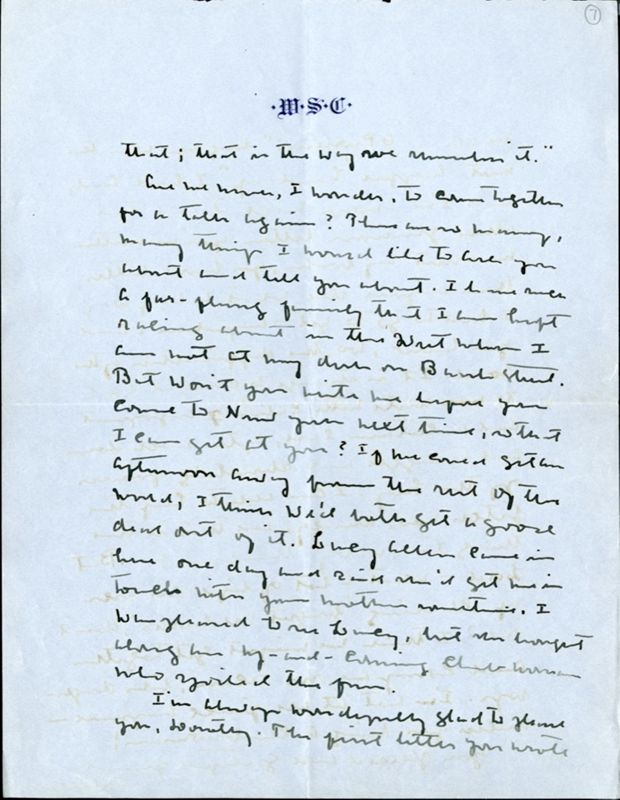 7
·W·S·C·
that; that is the way we remember it."
Are we never, I wonder, to come together
for a talk again? There are so many,
many things I would like to ask you
about and tell you about. I have such
a far-flung family that I am kept
racing about in the West when I
am not at my desk on Bank Street.
But won't you write me before you
come to New York next time, so that
I can get at you? If we could get an
afternoon away from the rest of the
world, I think we'd both get a good
deal out of it. Lucy came in
here one day and said she'd get me in
touch with your mother sometime. I
was pleased to see Lucy, but she brought
along an up-and-coming Club-woman
who spoiled the fun.
I'm always wonderfully glad to hear
you, Dorothy. The first letter you wrote